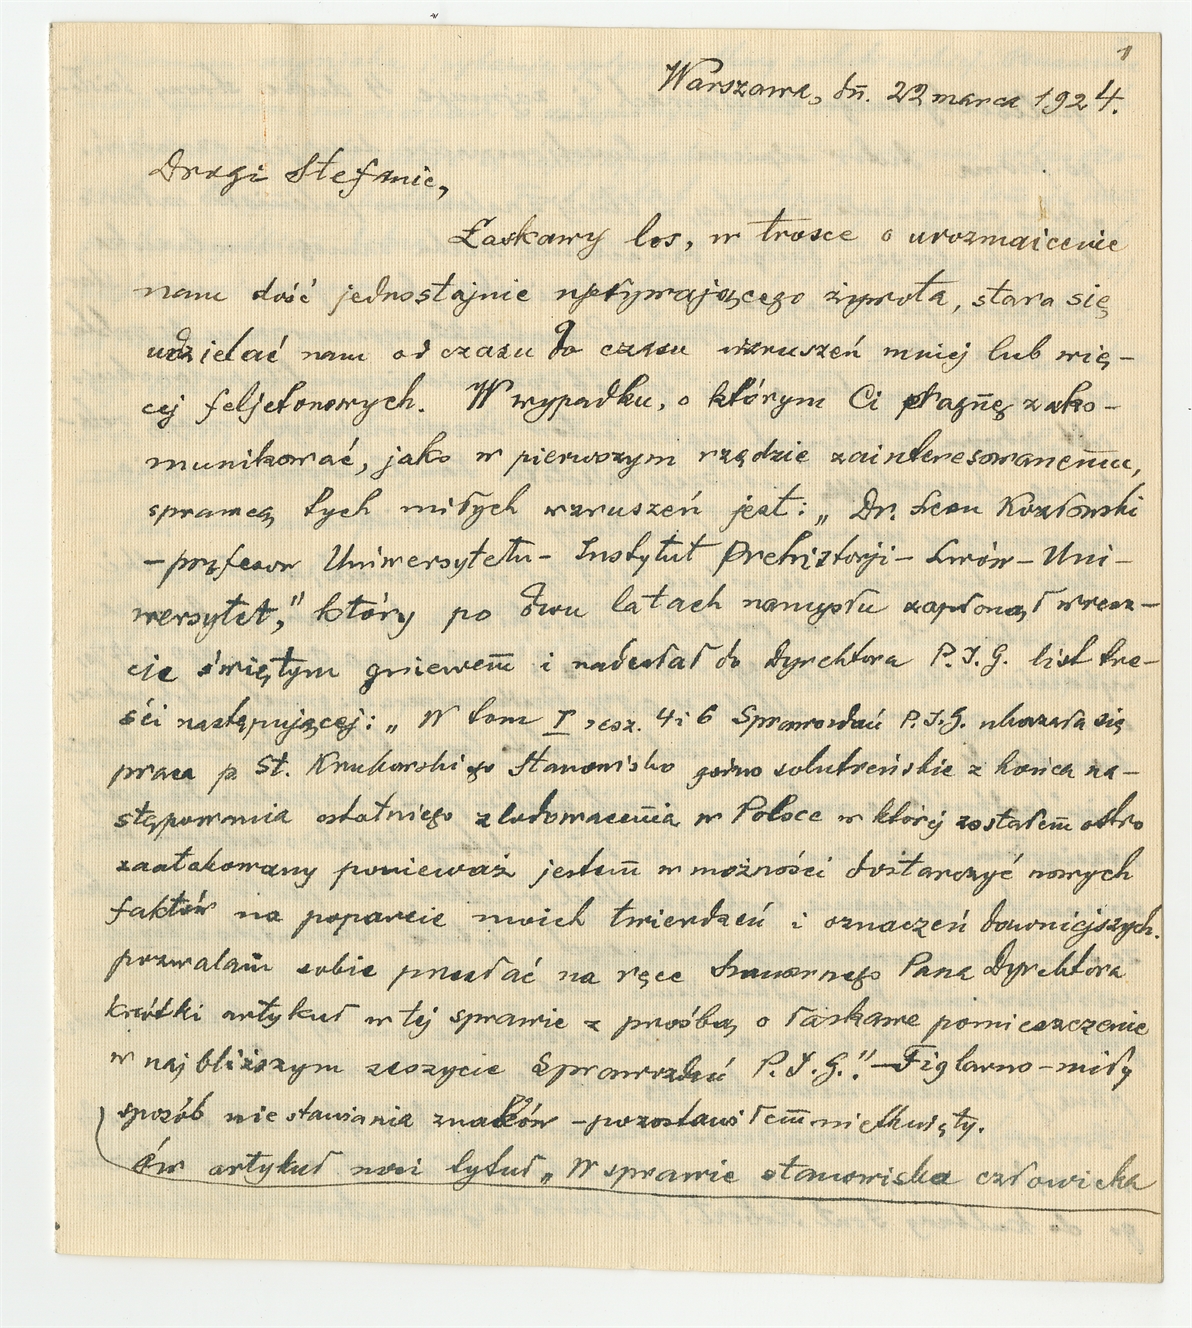 1
Warszawa, dń. 22 marca 1924.
Drogi Stefanie,
Łaskawy los, w trosce o urozmaicenie
nam dość jednostajnie upływającego żywota, stara się
udzielać nam od czasu do czasu wzruszeń mniej lub wię-
cej feljetonowych. W wypadku, o którym Ci pragnę zako-
munikować, jako w pierwszym rzędzie zainteresowanemu,
sprawcą tych miłych wzruszeń jest: „Dr. Leon Kozłowski
- profesor Uniwersytetu - Instytut Prehistorji - Lwów - Uni-
wersytet", który po dwu latach namysłu zapłonął wresz-
cie świętym gniewem i nadesłał do Dyrektora P.I.G. list tre-
ści następującej: „W tom I zesz. 4 i 6 Sprawozdań P.I.G. ukazała się
praca p St. Krukowskiego Stanowisko górno solutreńskie z końca na-
stępowania ostatniego zlodowacenia w Polsce w której zostałem ostro
zaatakowany ponieważ jestem w możności dostarczyć nowych
faktów na poparcie moich twierdzeń i oznaczeń dawniejszych.
pozwalam sobie przesłać na ręce Szanownego Pana Dyrektora
krótki artykuł w tej sprawie z prośbą o łaskawe pomieszczenie
w najbliższym zeszycie Sprawozdań P.I.G." - Figlarno-miły
sposób niestawiania znaków - pozostawiłem nietknięty.
Ów artykuł nosi tytuł „W sprawie stanowiska człowieka